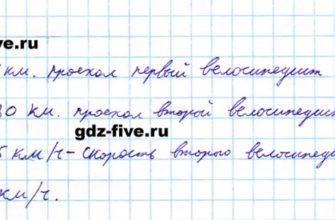 ive.ru
км. проехал первый велосипедист
30 км. проехал второй велосипедист
gdz-five.ru
5 км/ч - скорость второго велосипеди
км/ч.